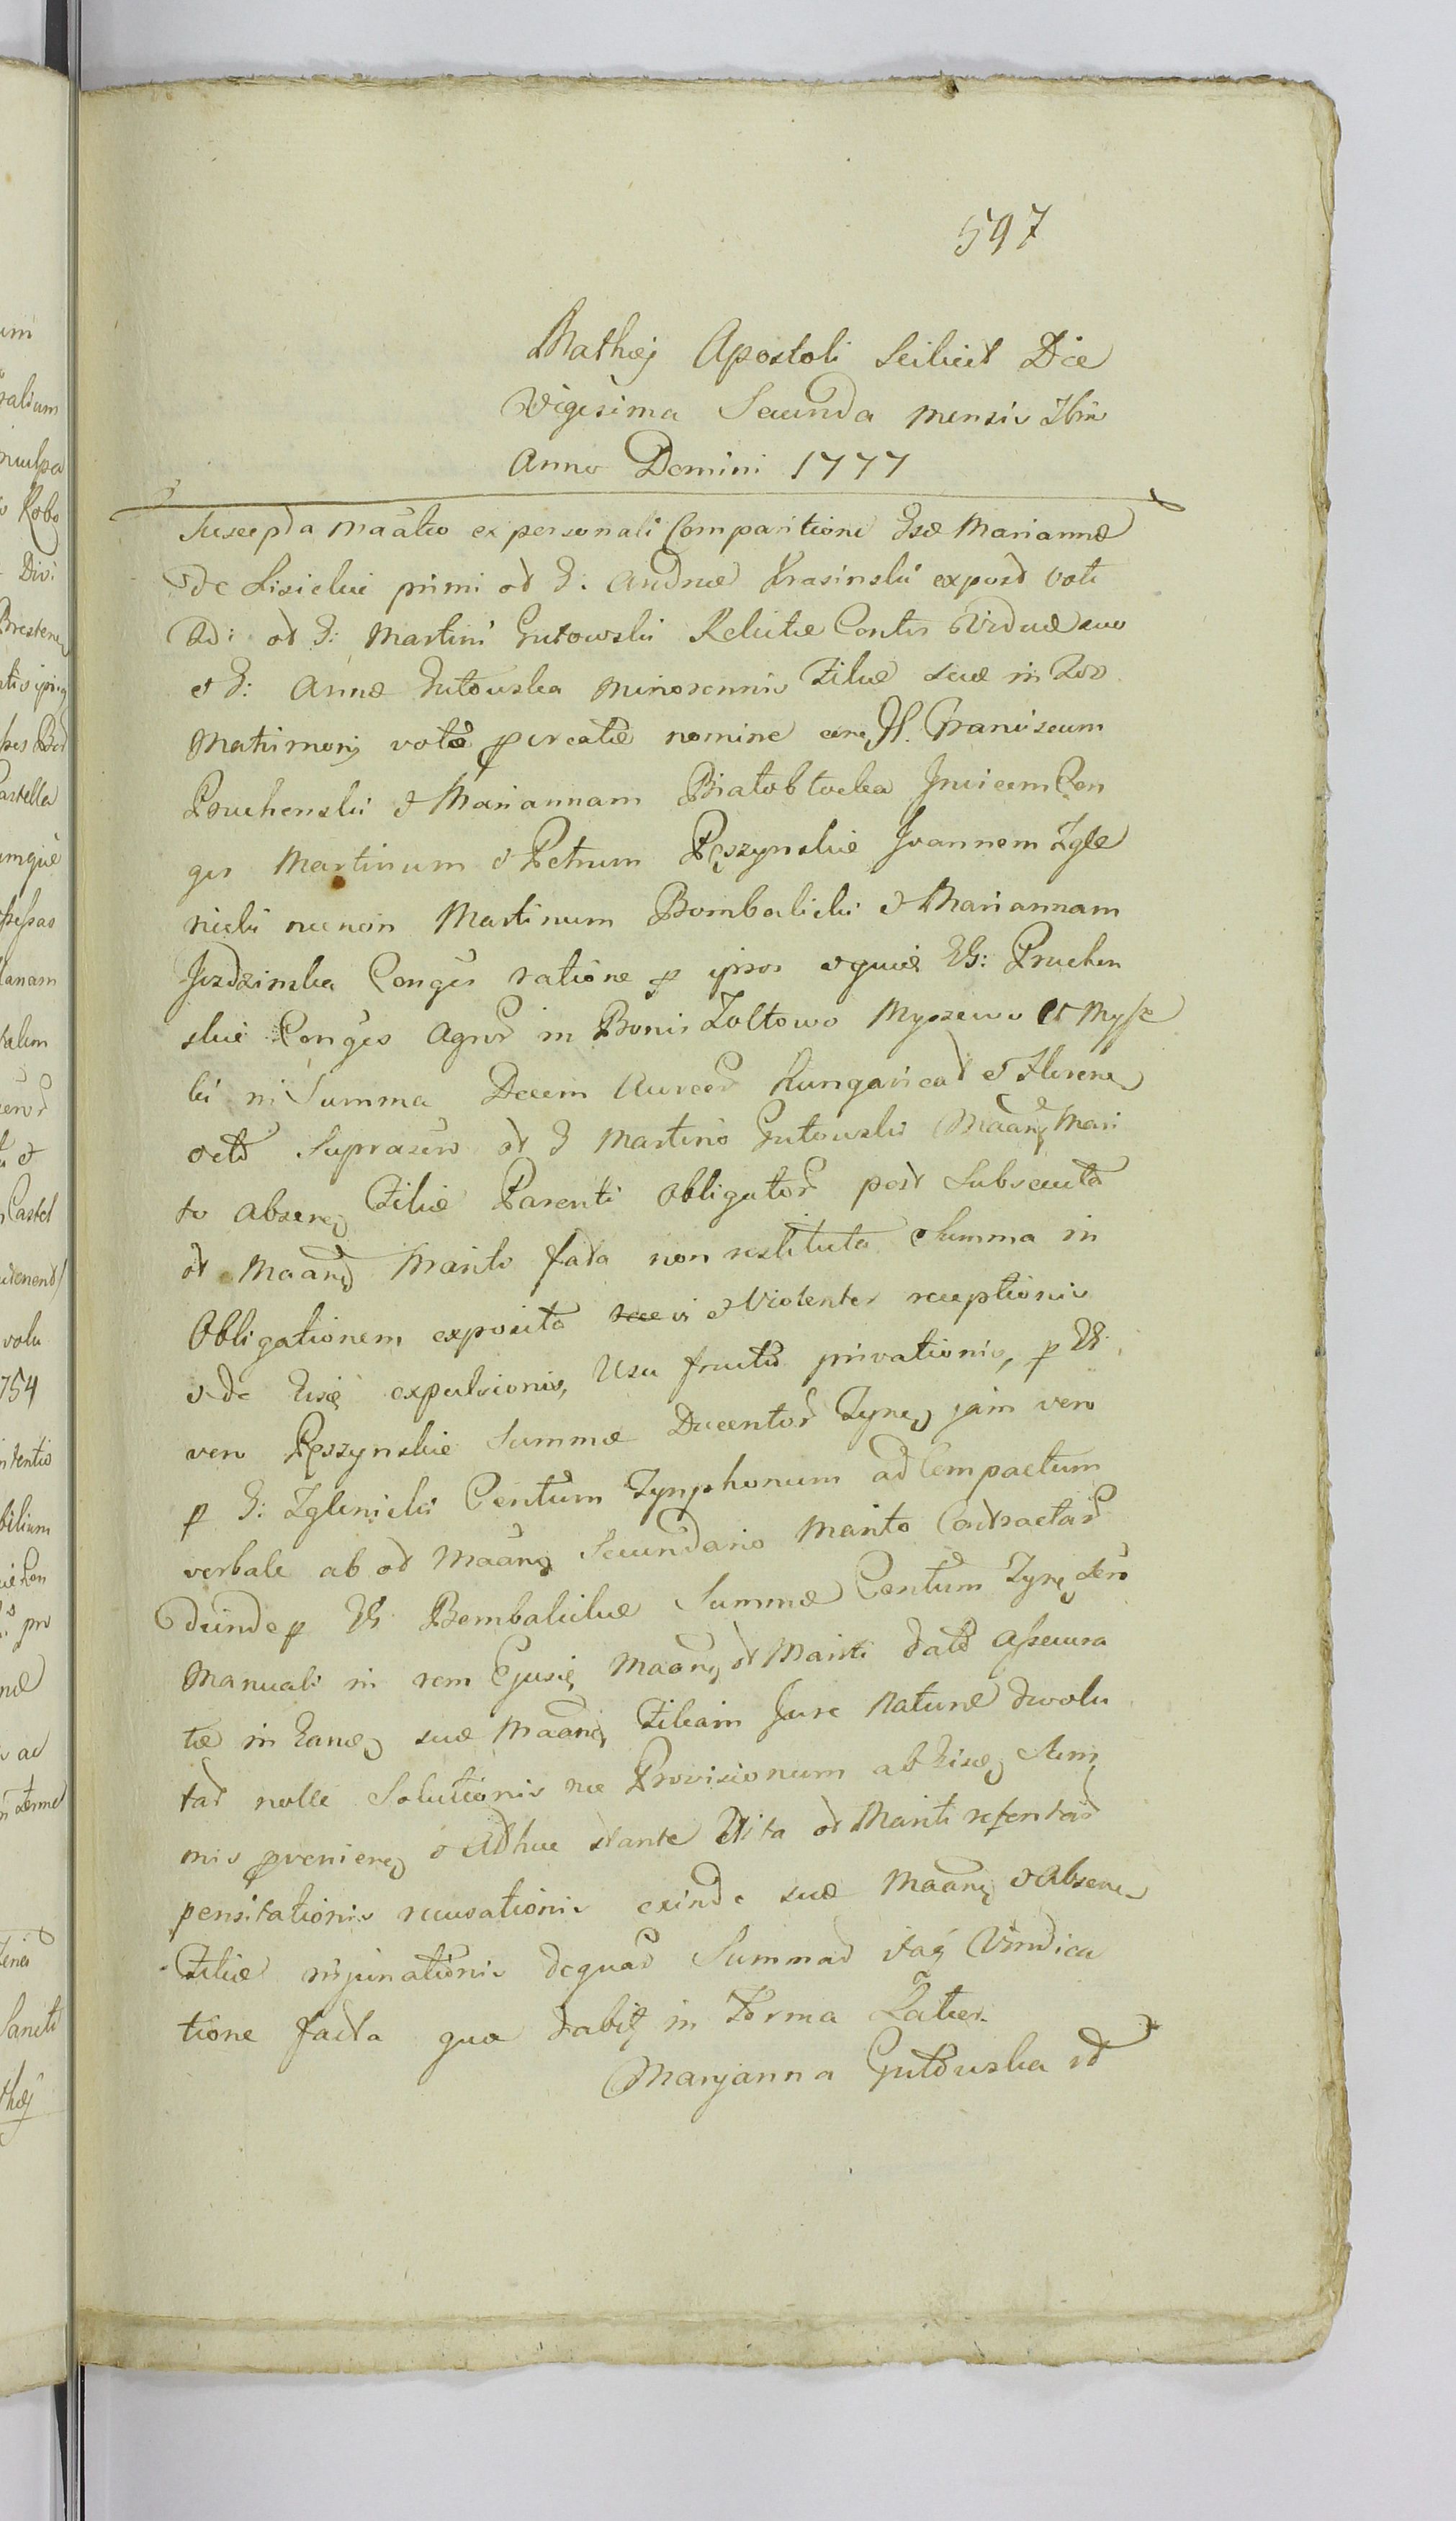 597
Mathæj Apostoli Scilicet Die
Vigesima Secunda mensis 7bris
Anno Domini 1777
Suscepta maãtio ex personali Comparitione Gsæ Mariannæ
de Lisickie primi ol G. Andreæ Krasinski expost voti
2di ol G: Martini Gutowski Relictæ Contis Viduæ suo
et G: Annæ Gutowska minorennis Filiæ suæ in 2do
Matrimonij voto pcreatæ nomine cra G. Franciscum
Pruchenski et Mariannam Białobłocka Invicem Con
ges Martinum et Petrum Ręszynskie Joannem Zgle
nicki necnon Martinum Bombalicki et Mariannam
Jezdzinska Conges ratione p ipsos eguid GG: Pruchen
skie Conges Agror in Bonis Zołtowo Myszewo et Mysz
ki in Summa Decem Aureor Hungarical et Floren
octo Supraser ol G Martino Gutowski Maãng Mari
to absen Filiæ Parenti obligator post Subsecuta
ol Maãng Mariti fata non restituta Summa in
Obligationem exposita vi et Violenter receptionis
et de Eisq expulsionis, Usu fructu privationis, p GG.
vero Ręszynskie Summæ Ducentor Tyn jam vero
p G: Zglenicki Centum Tynphonum ad Compactum
verbale ab ol Maãng Secundario Marito Contractar
deinde p GG Bombalickie Summæ Centum Tyn
Manuali in rem Ejusq Maãng ol Mariti dato assecura
tæ in Eand suæ Maãng Filiam Jure Naturæ devolu
tar nolle Solutionis nec Provisionum ab Eisd Sum
mis pvenien et Adhuc stante Vita ol Mariti
pensitationis recusationis exinde suæ Maãng et Absen
Filiæ injuriationis dequar Summar Vindica
tione facta qua dabit in Forma Latior.
Maryanna Gutowska